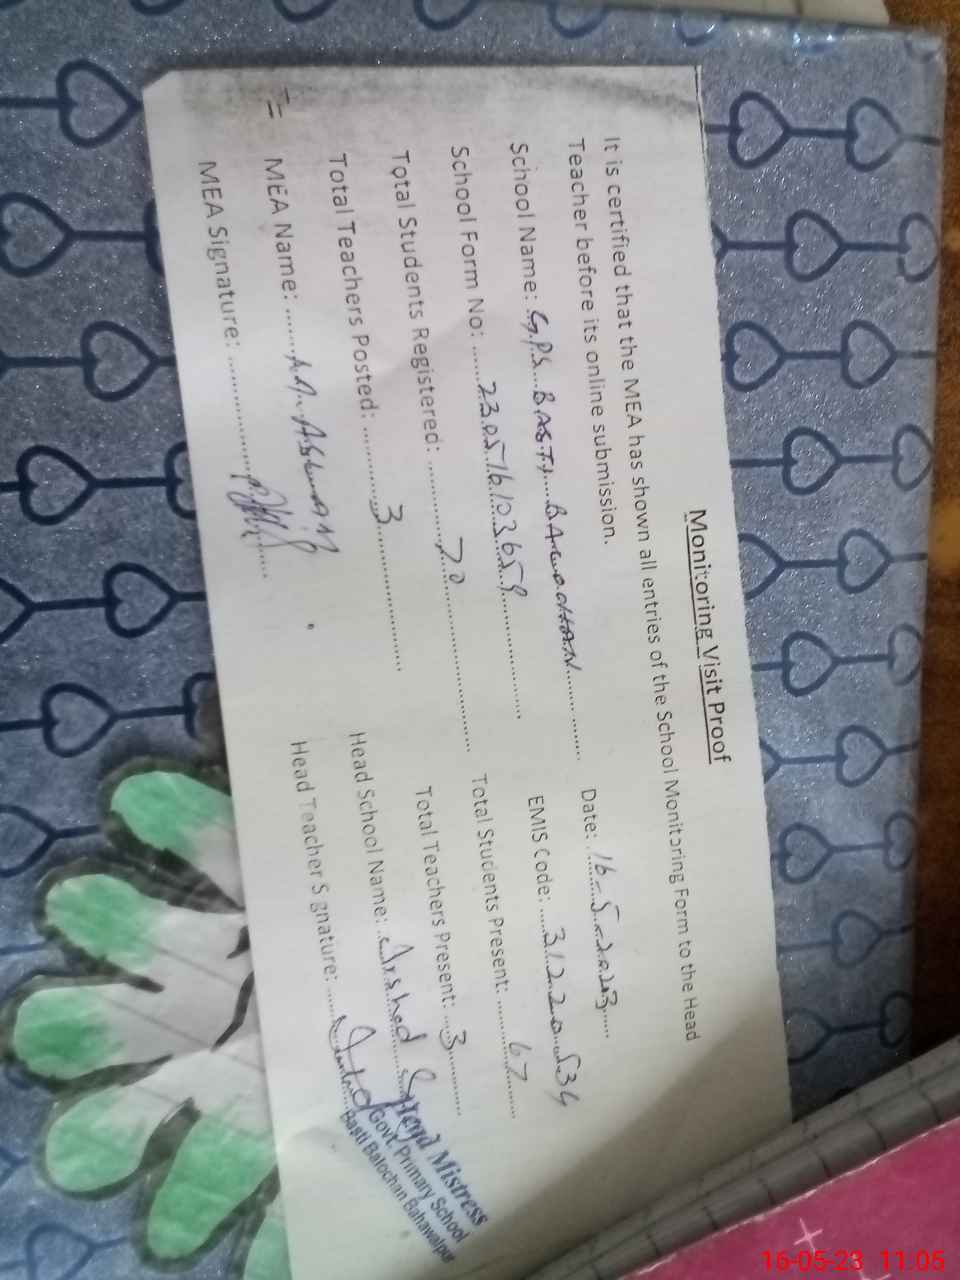 Monitoring Visit Proof
It is certified that the MEA has shown all entries of the School Monitoring Form to the Head
Teacher before its online submission.
Date: 16-5-2023
School Name: G.P.S. BASTI BALOCHAN
EMIS Code: 31220534
School Form No: 230516103659
Total Students Present: 67
Total Students Registered: 70
Total Teachers Present: 3
Total Teachers Posted: 3
Head School Name: Arshad
MEA Name:
Head Teacher Signature:
MEA Signature:
Head Mistress
Govt. Primary School
Basti Balochan Bahawalpur
16-05-23 11:05